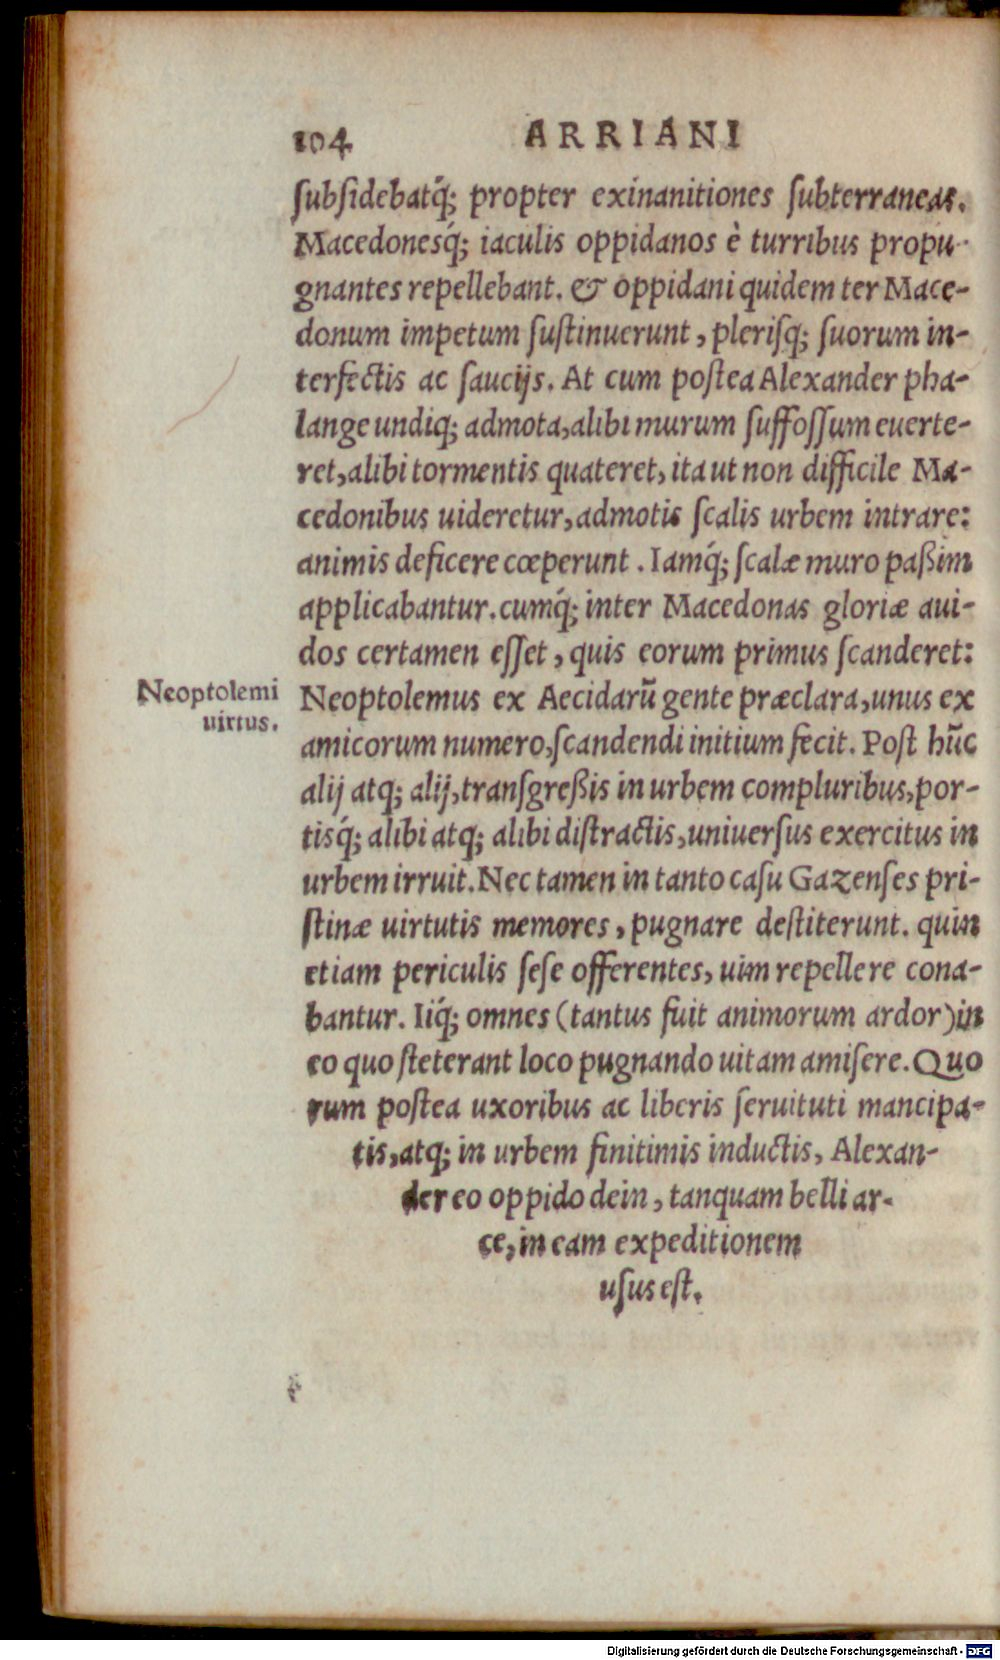 104 ARRIANI
ſubſidebatq́; propter exinanitiones ſubterraneas.
Macedonesq́; iaculis oppidanos è turribus propu
gnantes repellebant. & oppidani quidem ter Mace-
donum impetum ſuſtinuerunt, pleriſq; ſuorum in-
terfectis ac ſaucijs. At cum poſtea Alexander pha-
lange undiq; admota, alibi murum ſuffoſſum euerte-
ret, alibi tormentis quateret, ita ut non difficile Ma-
cedonibus uideretur, admotis ſcalis urbem intrare:
animis deficere cœperunt. Iamq́; ſcalæ muro paßim
applicabantur. cumq́; inter Macedonas gloriæ aui-
dos certamen eſſet, quis eorum primus ſcanderet:
Neoptolemi
uirtus.
Neoptolemus ex Aecidarũ gente præclara, unus ex
amicorum numero, ſcandendi initium fecit. Poſt hũc
alij atq; alij, tranſgreßis in urbem compluribus, por-
tisq́; alibi atq; alibi diſtractis, uniuerſus exercitus in
urbem irruit. Nec tamen in tanto caſu Gazenſes pri-
ſtinæ uirtutis memores, pugnare deſtiterunt. quin
etiam periculis ſeſe offerentes, uim repellere cona-
bantur. Iiq́; omnes (tantus fuit animorum ardor) in
eo quo ſteterant loco pugnando uitam amiſere. Quo
rum poſtea uxoribus ac liberis ſeruituti mancipa-
tis, atq; in urbem finitimis inductis, Alexan-
der eo oppido dein, tanquam belli ar-
ce, in eam expeditionem
uſus eſt.
Digitalisierung gefördert durch die Deutsche Forschungsgemeinschaft - DFG